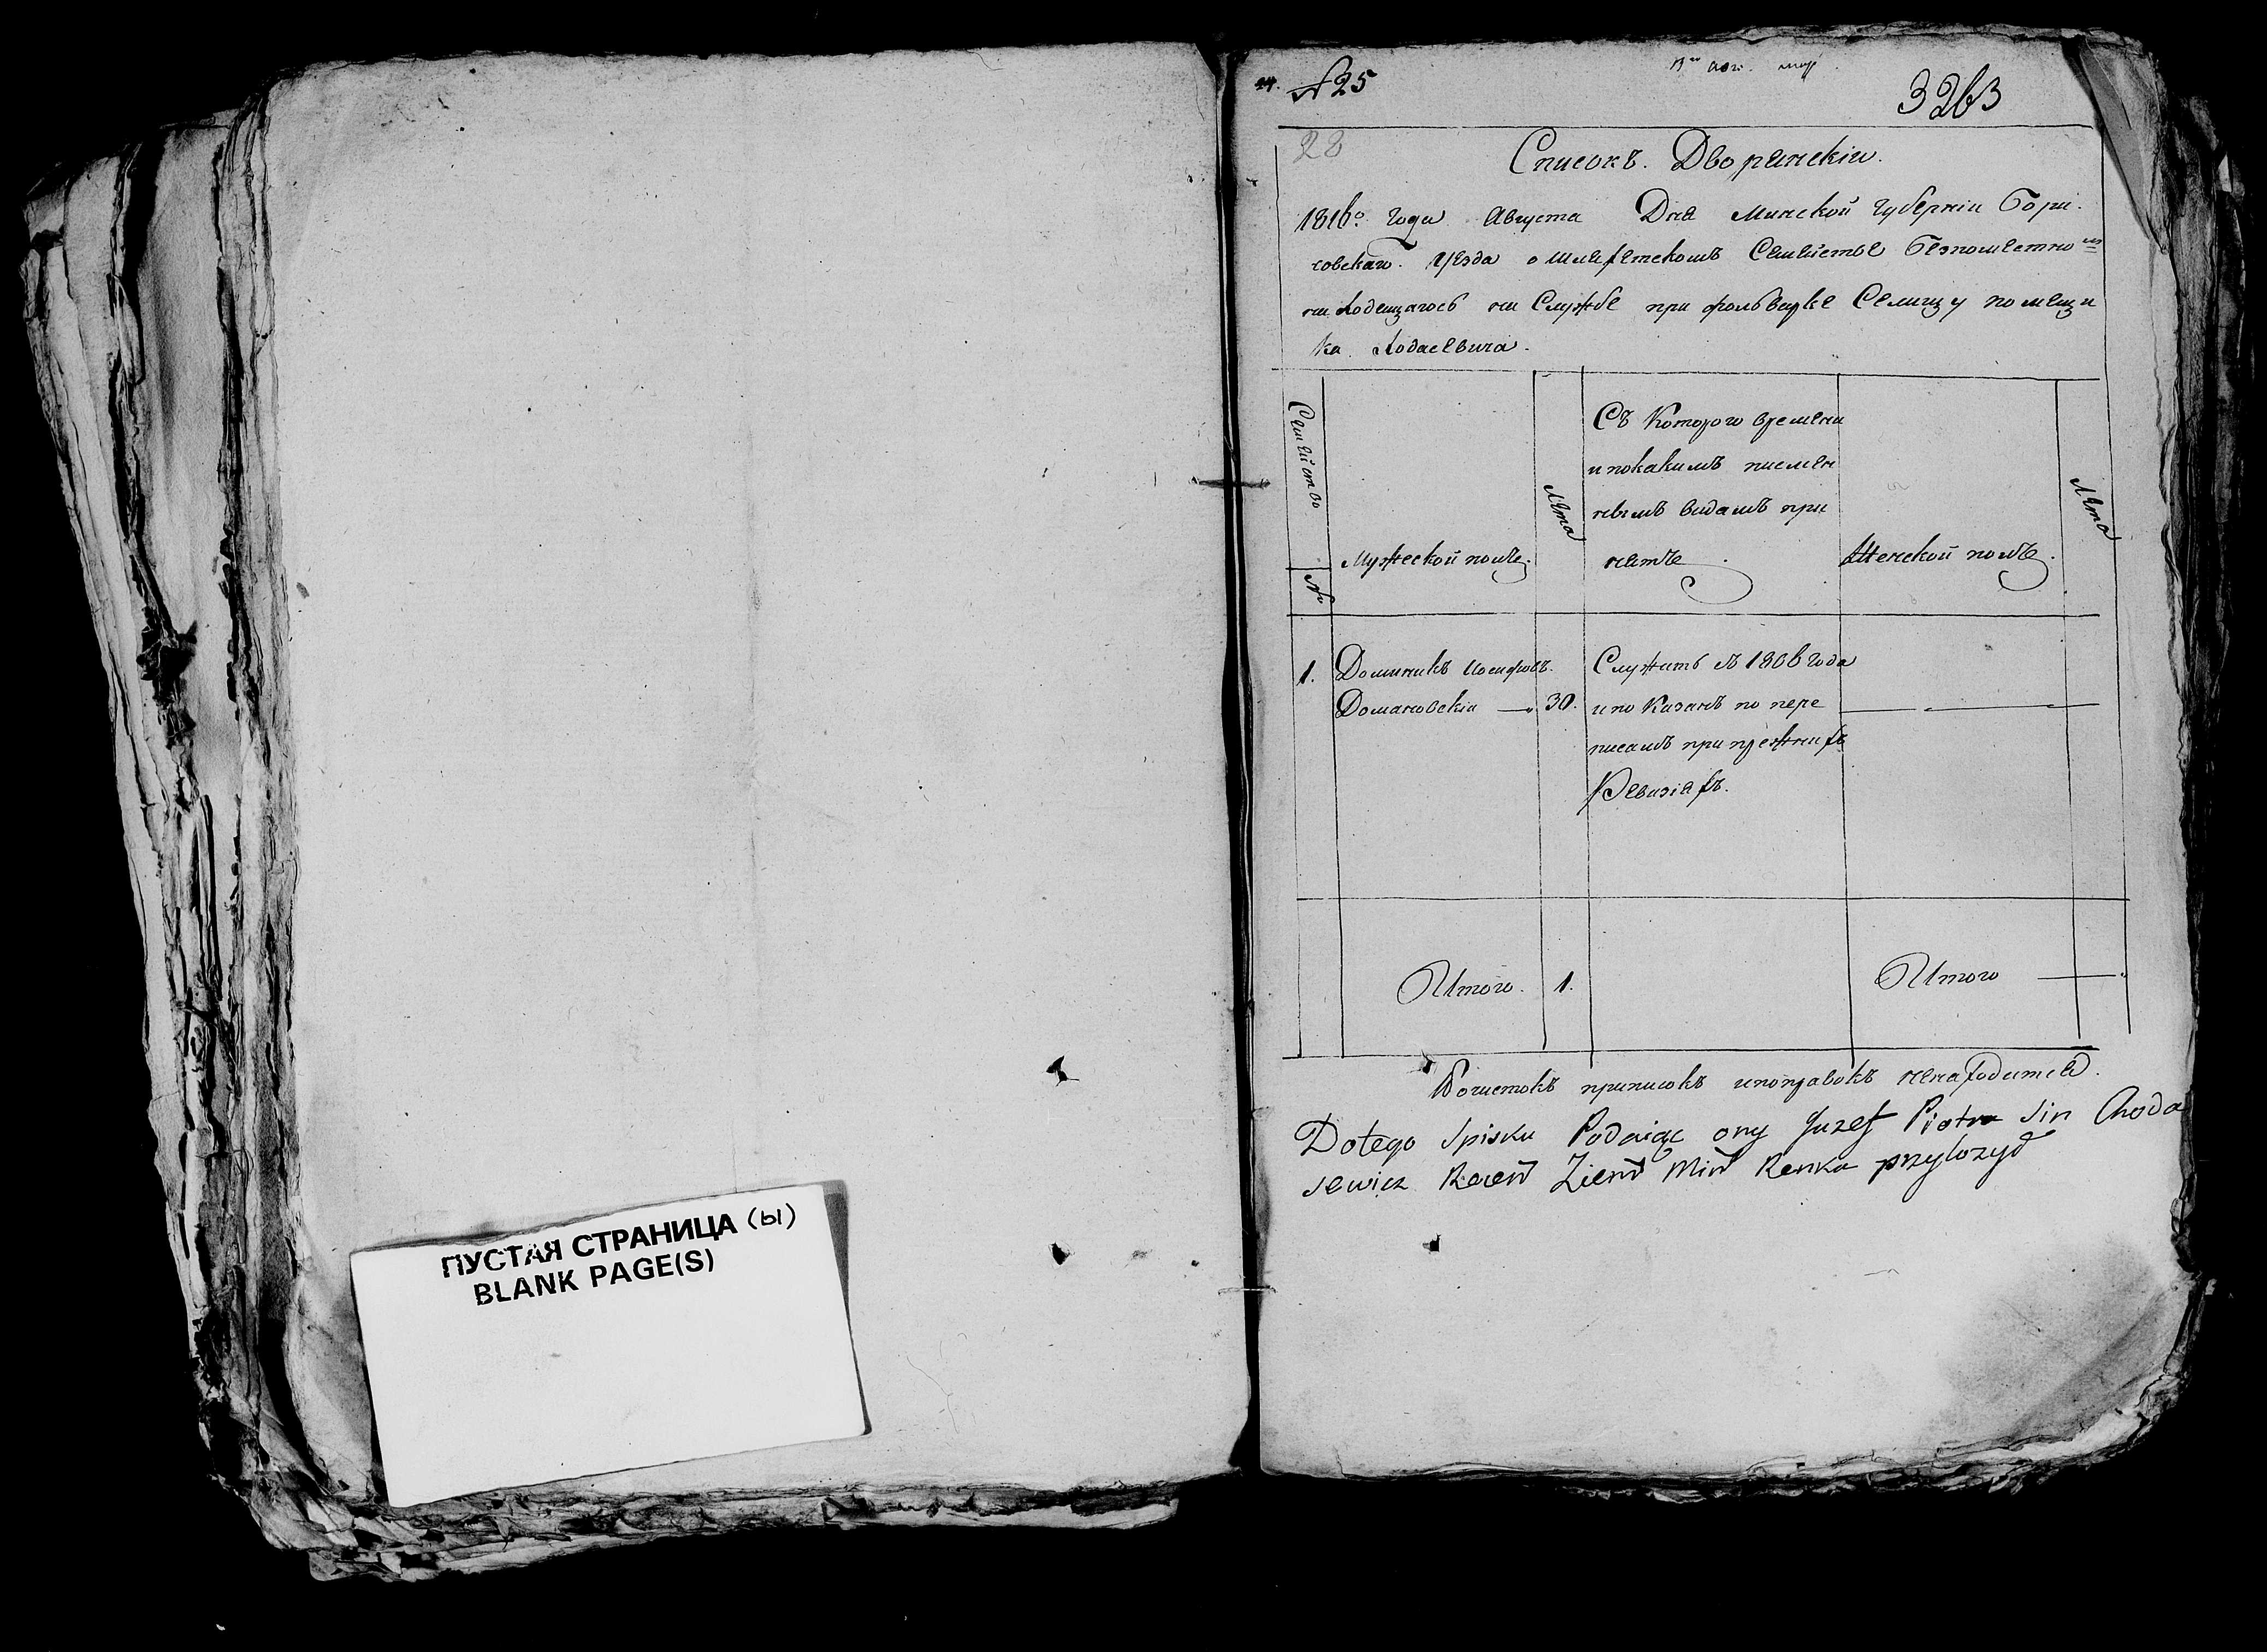 ПУСТАЯ СТРАНИЦА (ы)
BLANK PAGE(S)
№ 25
3263
28
Списокъ Дворянскiи.
1816го года Августа Дня Минской Губернiи Бори-
совскаго Уезда о шляхетскомъ Семействе безпоместномъ
находящагось на Службе при фольварке Селищу помещи
ка Ходасевича.
Семейство
№
Мужеской полъ.
Лета
Съ Которого времени
и покакимъ писмен
нымъ видамъ при
нятъ
Женской полъ.
Лета
1. Доминикъ Иосифовъ. Служитъ съ 1806 года
Домановскiи — 30. и показанъ по пере
писамъ при прежнихъ
Ревизiяхъ.
Итого. 1. Итого —
Почистокъ приписокъ ипоправокъ ненаходится.
Dotego Spisku Podaiąc ony Juzef Piotra Sin Choda
sewicz Reień Ziem Miń Renka przylozył